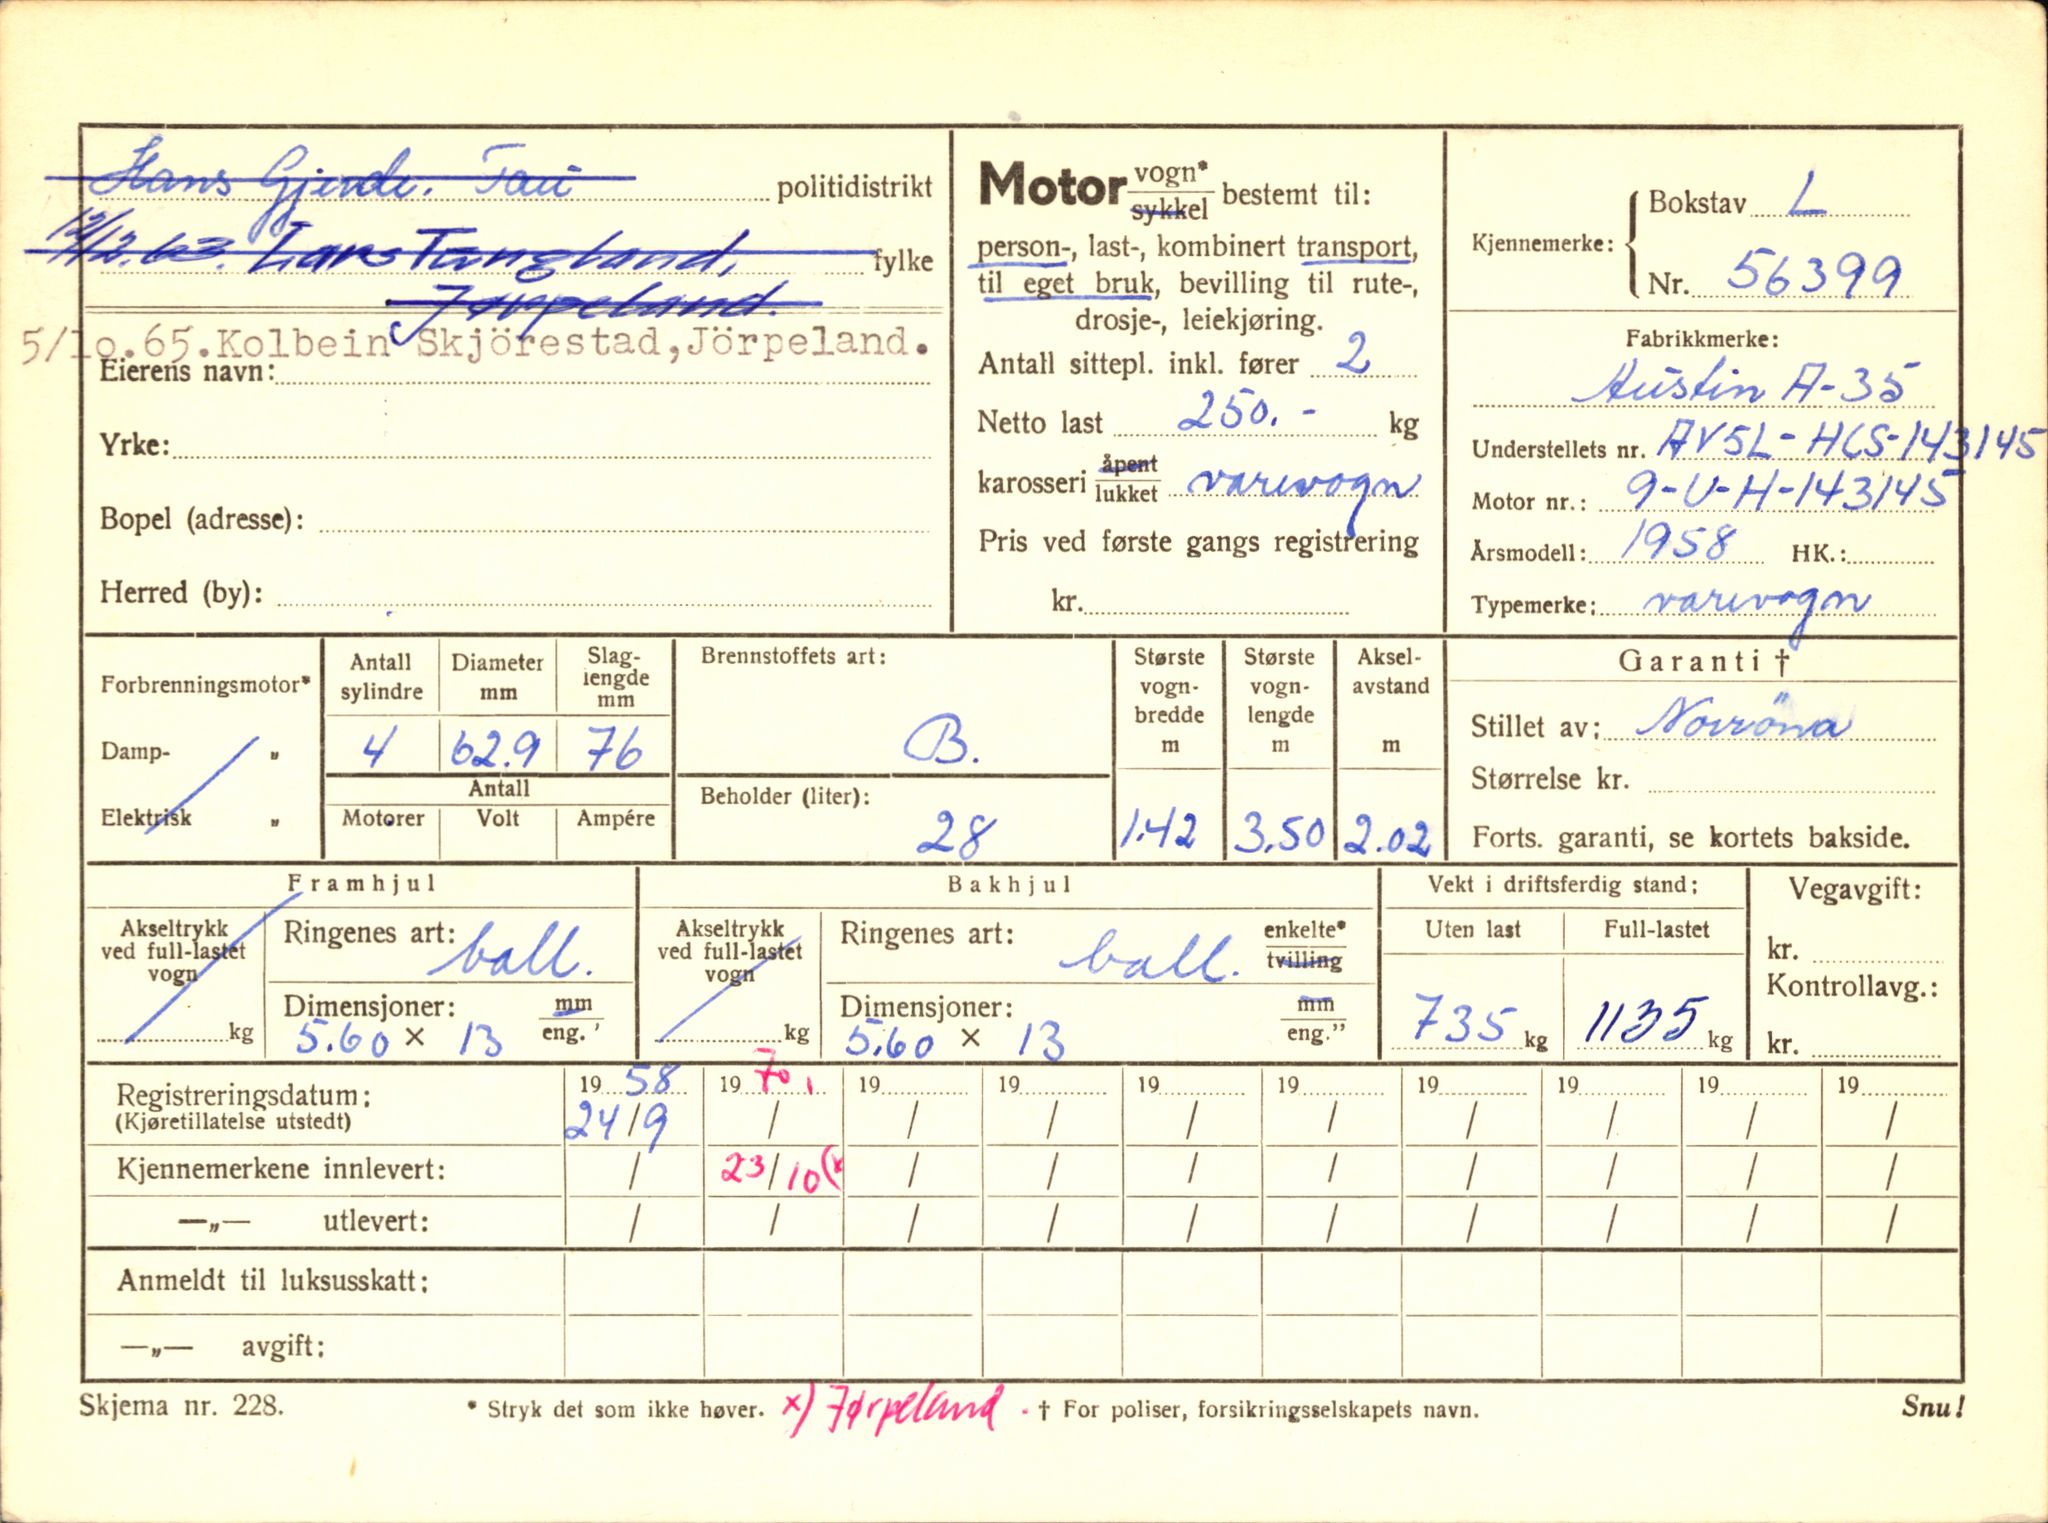 Hans Gjerde. Tau politidistrikt
12/12.63. Lars Tungland, fylke
Jørpeland.
5/10.65. Kolbein Skjörestad, Jörpeland.
Eierens navn:
Yrke:
Bopel (adresse):
Herred (by):
Motor vogn* sykkel bestemt til:
person-, last-, kombinert transport,
til eget bruk, bevilling til rute-,
drosje-, leiekjøring.
Antall sittepl. inkl. fører 2
Netto last 250.- kg
karosseri åpent lukket varevogn
Pris ved første gangs registrering
kr.
Kjennemerke: Bokstav L
Nr. 56399
Fabrikkmerke:
Austin A-35
Understellets nr. AV5L-HCS-143145
Motor nr.: 9-U-H-143145
Årsmodell: 1958 HK.:
Typemerke: varevogn
Forbrenningsmotor*
Damp- „
Elektrisk „
Antall sylindre 4
Diameter mm 62.9
Slag-lengde mm 76
Antall
Motorer Volt Ampére
Brennstoffets art:
B.
Beholder (liter):
28
Største vogn-bredde m 1.42
Største vogn-lengde m 3.50
Aksel-avstand m 2.02
Garanti †
Stillet av: Norröna
Størrelse kr.
Forts. garanti, se kortets bakside.
Framhjul
Akseltrykk ved full-lastet vogn kg
Ringenes art: ball.
Dimensjoner: mm eng."
5.60 × 13
Bakhjul
Akseltrykk ved full-lastet vogn kg
Ringenes art: ball. enkelte* tvilling
Dimensjoner: mm eng."
5.60 × 13
Vekt i driftsferdig stand:
Uten last Full-lastet
735 kg 1135 kg
Vegavgift:
kr.
Kontrollavg.:
kr.
Registreringsdatum: 19 58 19 70 19 19 19 19 19 19 19 19
(Kjøretillatelse utstedt) 24/9 / / / / / / / / /
Kjennemerkene innlevert: / 23/10 (x / / / / / / / /
—„— utlevert: / / / / / / / / / /
Anmeldt til luksusskatt:
—„— avgift:
Skjema nr. 228. * Stryk det som ikke høver. x) Jørpeland. † For poliser, forsikringsselskapets navn. Snu!